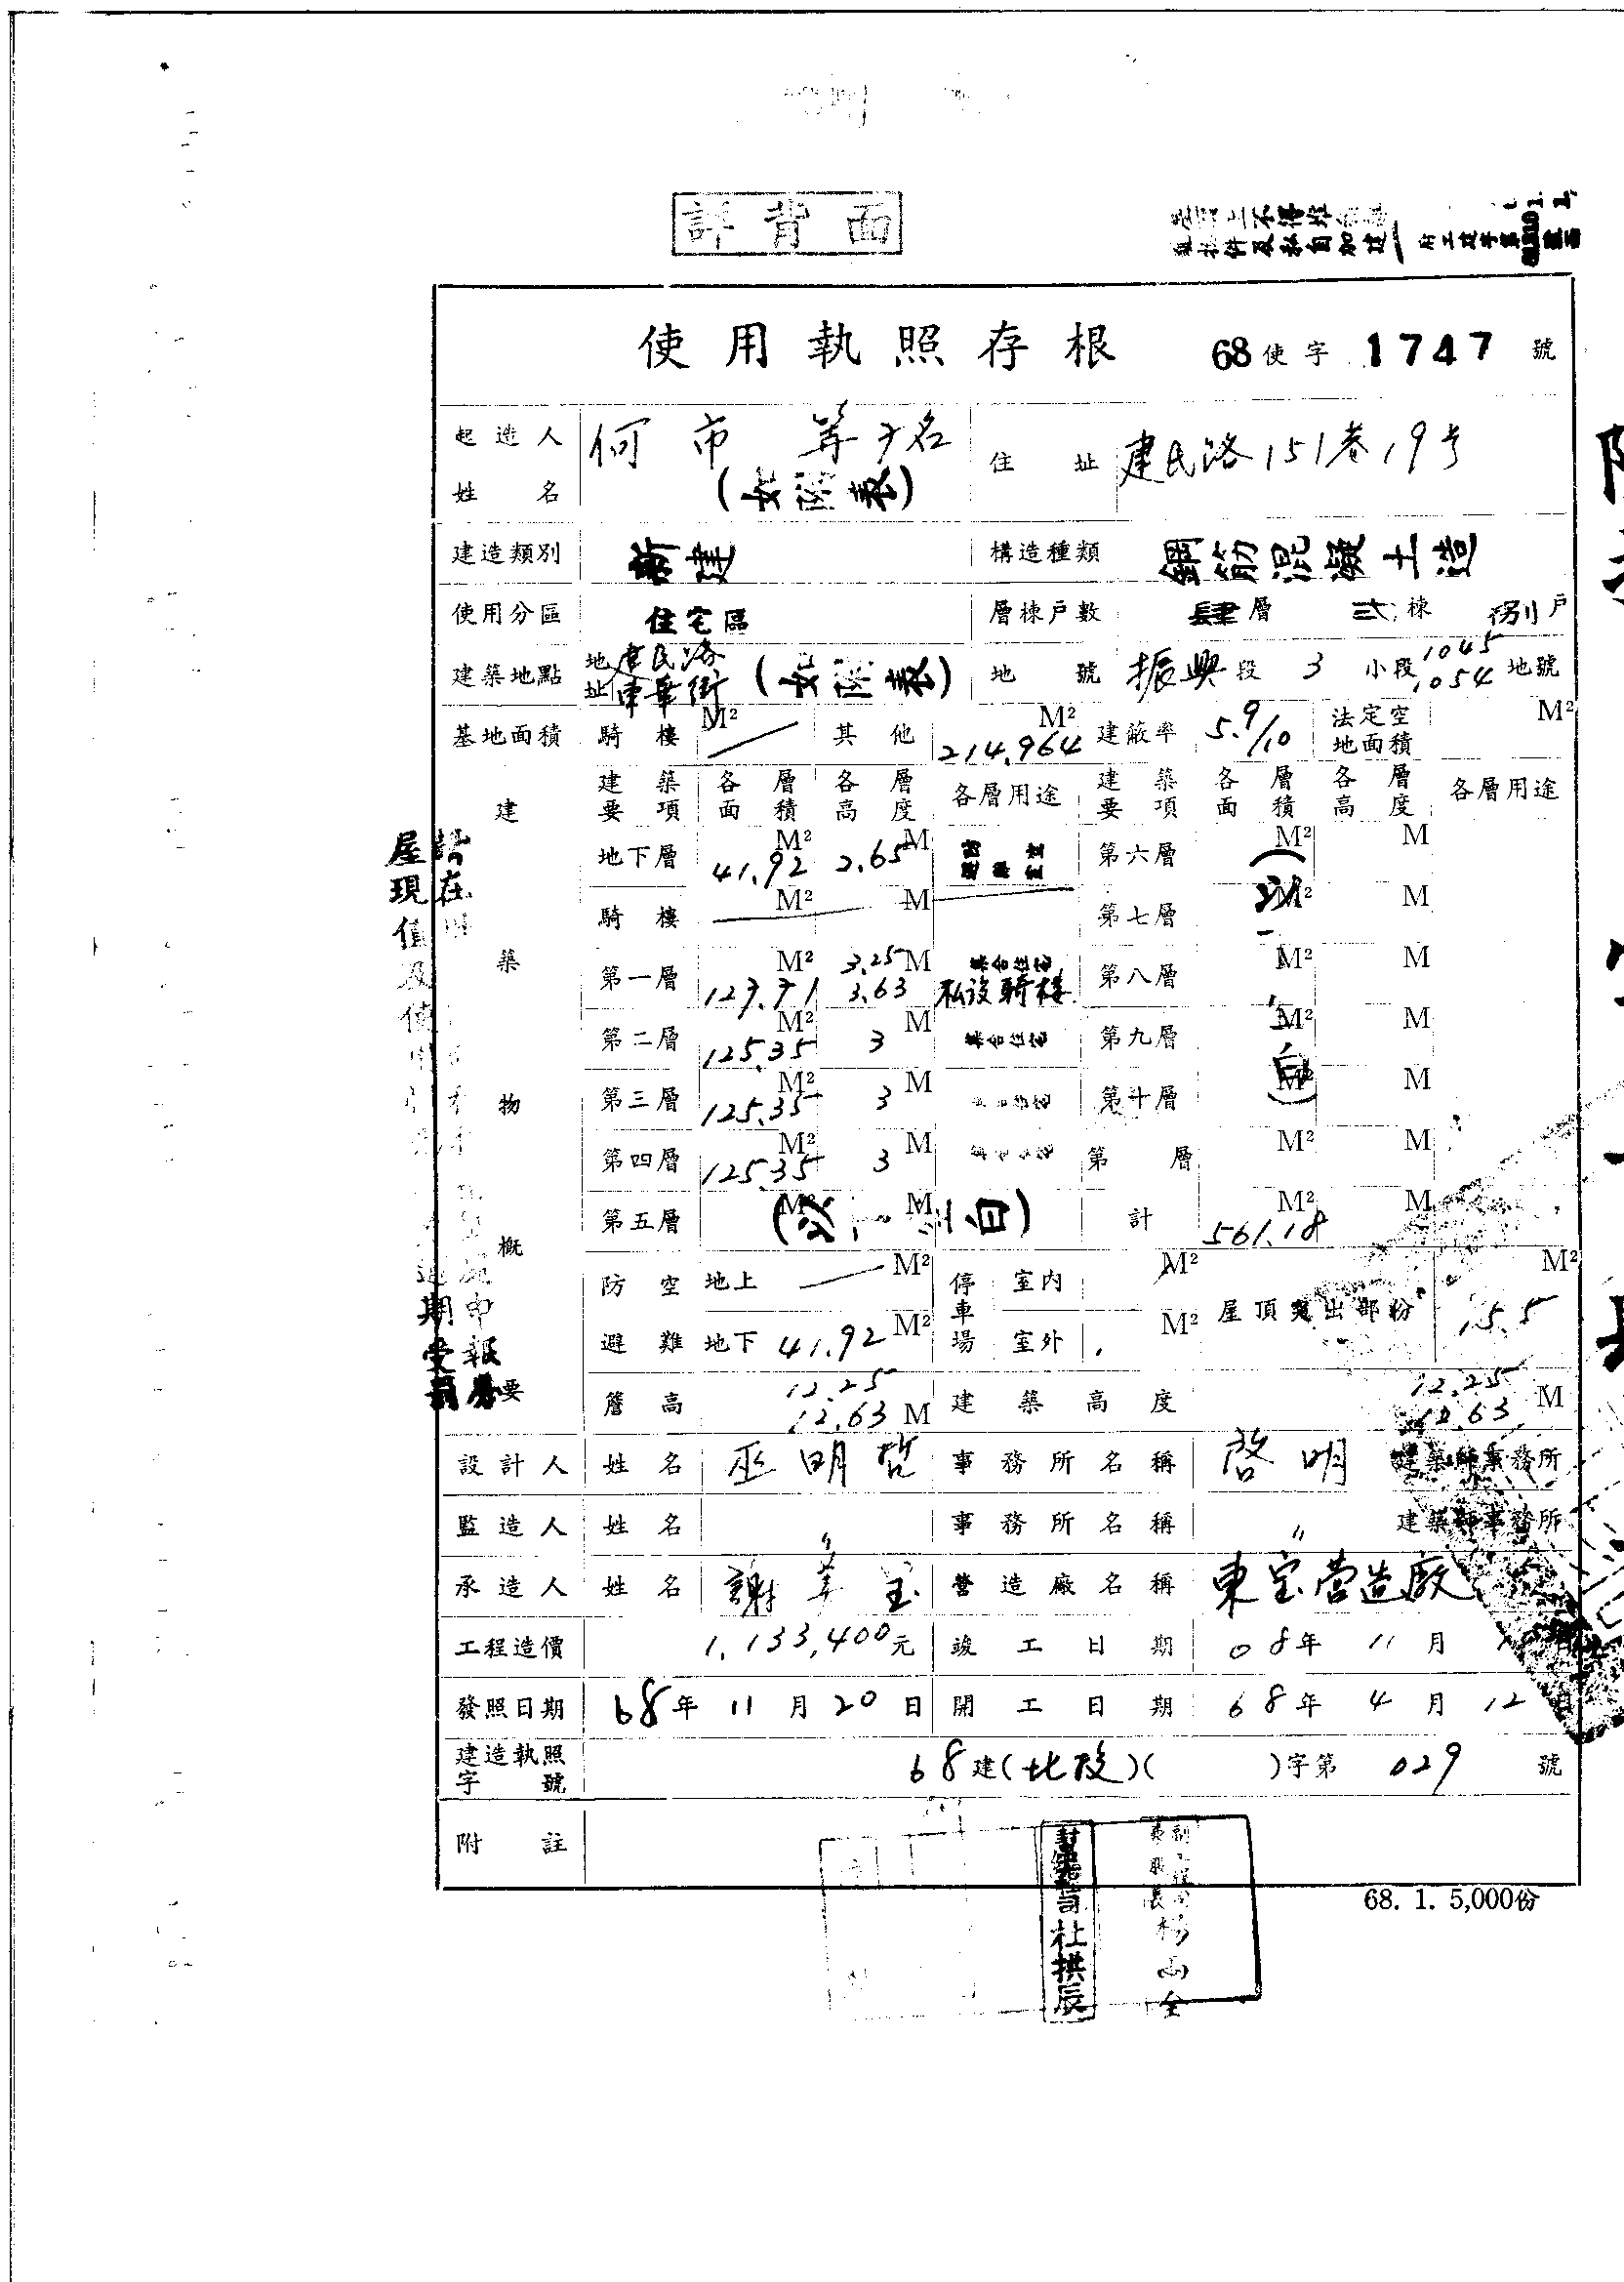 詳背面
使用執照存根 68使字 1747 號
起造人姓名 何市 等 名 (如附表) 住址 建民路151巷19号
建造類別 新建 構造種類 鋼筋混凝土造
使用分區 住宅區 層棟戶數 肆層 貳棟 捌戶
建築地點 地址 建民路 東華街 (如附表) 地號 振興段 3 小段 1045 1054 地號
基地面積 騎樓 M² 其他 214.964 M² 建蔽率 5.9/10 法定空地面積 M²
建築物概要
建築要項 各層面積 各層高度 各層用途 建築要項 各層面積 各層高度 各層用途
地下層 41.92 M² 2.65 M 第六層 M² M
騎樓 M² M 第七層 M² M
第一層 127.71 M² 3.25 3.63 M 集合住宅 私設騎樓 第八層 M² M
第二層 125.35 M² 3 M 集合住宅 第九層 M² M
第三層 125.35 M² 3 M 第十層 M² M
第四層 125.35 M² 3 M 第 層 M² M
第五層 M² M (以 空白) 計 561.18 M² M
防空避難 地上 M² 停車場 室內 M² 屋頂突出部份 15.5 M²
地下 41.92 M² 室外 M²
簷高 12.25 12.63 M 建築高度 12.25 12.63 M
設計人 姓名 巫明哲 事務所名稱 啓明 建築師事務所
監造人 姓名 〃 事務所名稱 〃 建築師事務所
承造人 姓名 謝 玉 營造廠名稱 東宝营造廠
工程造價 1,133,400元 竣工日期 68年 11月
發照日期 68年 11月 20日 開工日期 68年 4月 12日
建造執照字號 68建(北投)( )字第 029 號
附註
杜拱辰
68. 1. 5,000份